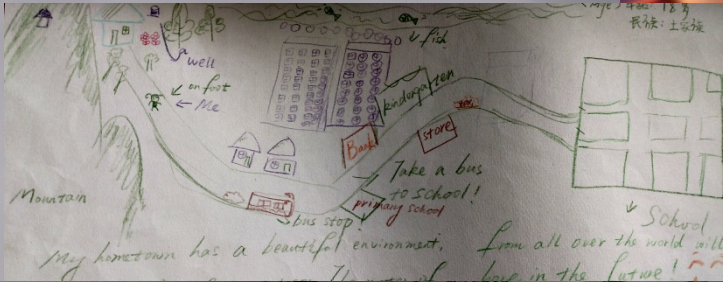 18岁
民族：土家族
fish
a
well
on foot
← Me
kindergarten
Bank
store
Take a bus
to school!
Mountain
bus stop!
primary school
School
My hometown has a beautiful environment.
from all over the world will
in the future!